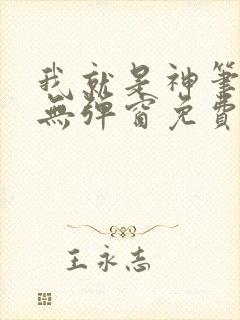 我就是神筆
無彈窗免費
王永志